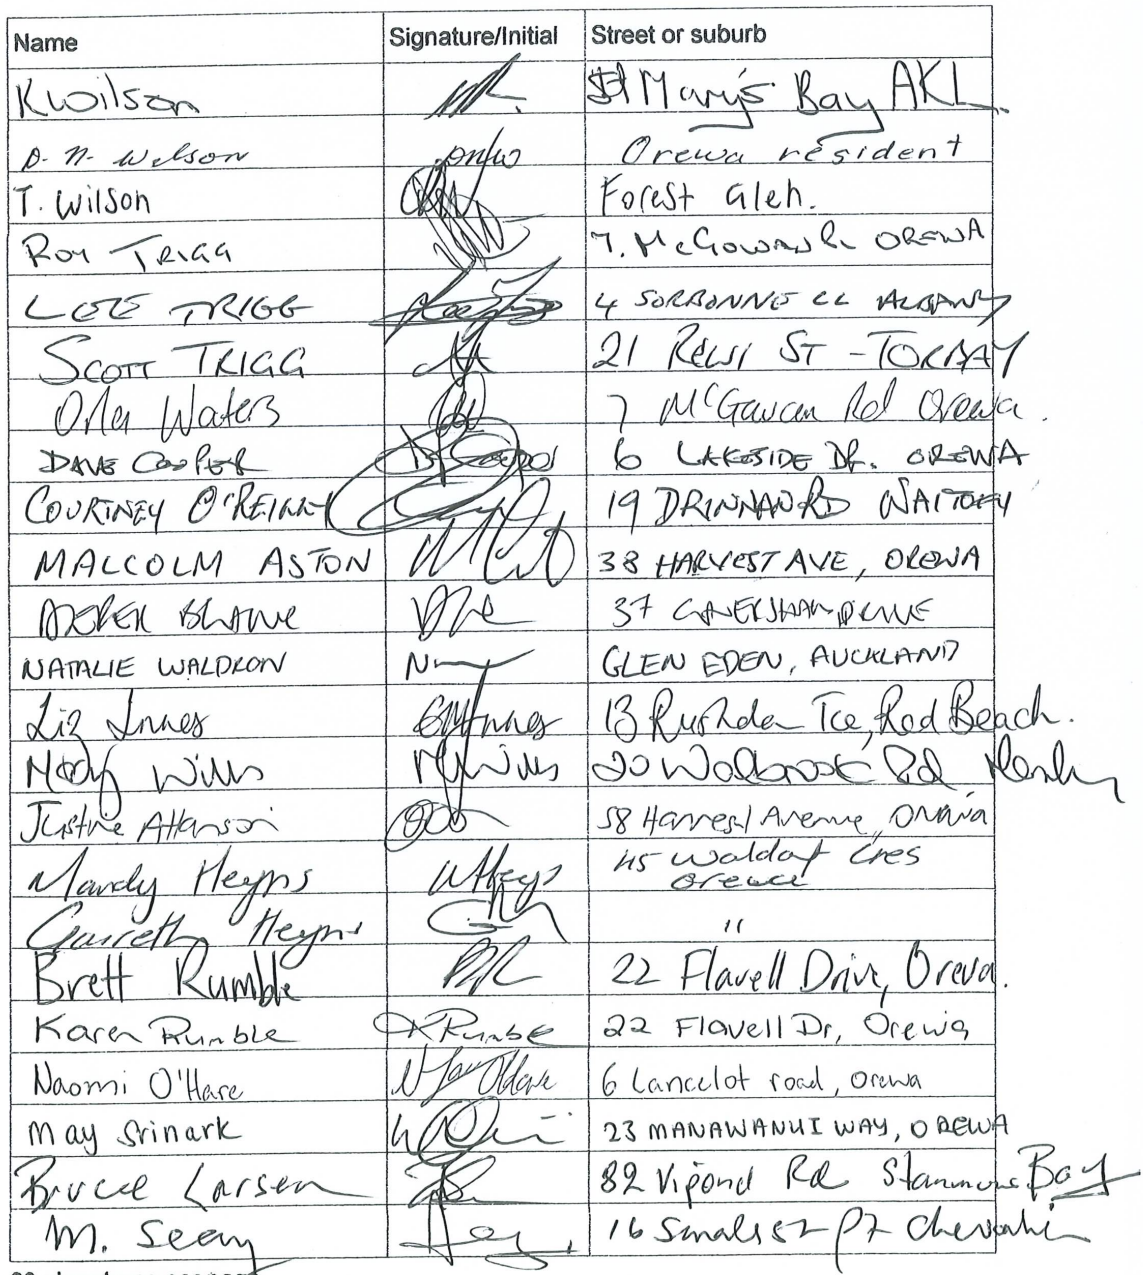 Name Signature/Initial Street or suburb
K Wilson St Mary's Bay AKL
D. N. Wilson Orewa resident
T. Wilson Forest Glen.
Roy Trigg 7. McGowan R. OREWA
LEE TRIGG 4 SORBONNE CL ALBANY
SCOTT TRIGG 21 REWI ST - TORBAY
Orla Waters 7 McGavan Rd Orewa.
DAVE COOPER D Cooper 6 LAKESIDE DR. OREWA
COURTNEY O'REILLY 19 DRINNAN RD WAITOKI
MALCOLM ASTON 38 HARVEST AVE, OREWA
DEREK 37 DRIVE
NATALIE WALDRON GLEN EDEN, AUCKLAND
Liz Innes Innes 13 Rushden Tce, Red Beach.
Wills Wills 20 Rd
Justine Atkinson 58 Harvest Avenue, Orewa
Mandy Heyns MHeyns 45 Waldorf Cres
Orewa
Garreth Heyns "
Brett Rumble BR 22 Flavell Drive, Orewa.
Karen Rumble KRumble 22 Flavell Dr, Orewa
Naomi O'Hare 6 Lancelot road, orewa
May Srinark 23 MANAWANUI WAY, OREWA
Bruce Larsen 82 Vipond Rd Stanmore Bay
M. Seay 16 Smale St Pt Chevalier